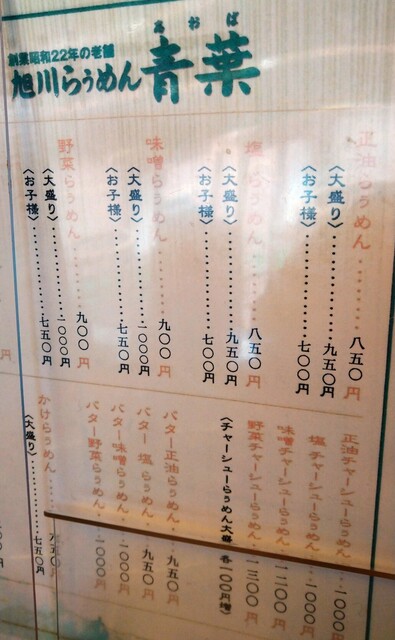 創業昭和22年の老舗
旭川らぅめん青葉
あおば
正油らぅめん…………八五〇円
〈大盛り〉…………九五〇円
〈お子様〉…………七〇〇円
塩らぅめん…………八五〇円
〈大盛り〉…………九五〇円
〈お子様〉…………七〇〇円
味噌らぅめん…………九〇〇円
〈大盛り〉…………一〇〇〇円
〈お子様〉…………七五〇円
野菜らぅめん…………九〇〇円
〈大盛り〉…………一〇〇〇円
〈お子様〉…………七五〇円
正油チャーシューらぅめん…一〇〇〇円
塩 チャーシューらぅめん…一〇〇〇円
味噌チャーシューらぅめん…一一〇〇円
野菜チャーシューらぅめん…一三〇〇円
〈チャーシューらぅめん大盛 各一〇〇円増〉
バター正油らぅめん…九五〇円
バター 塩 らぅめん…九五〇円
バター味噌らぅめん…一〇〇〇円
バター野菜らぅめん…一〇〇〇円
かけらぅめん…………五〇円
〈大盛り〉…………七五〇円